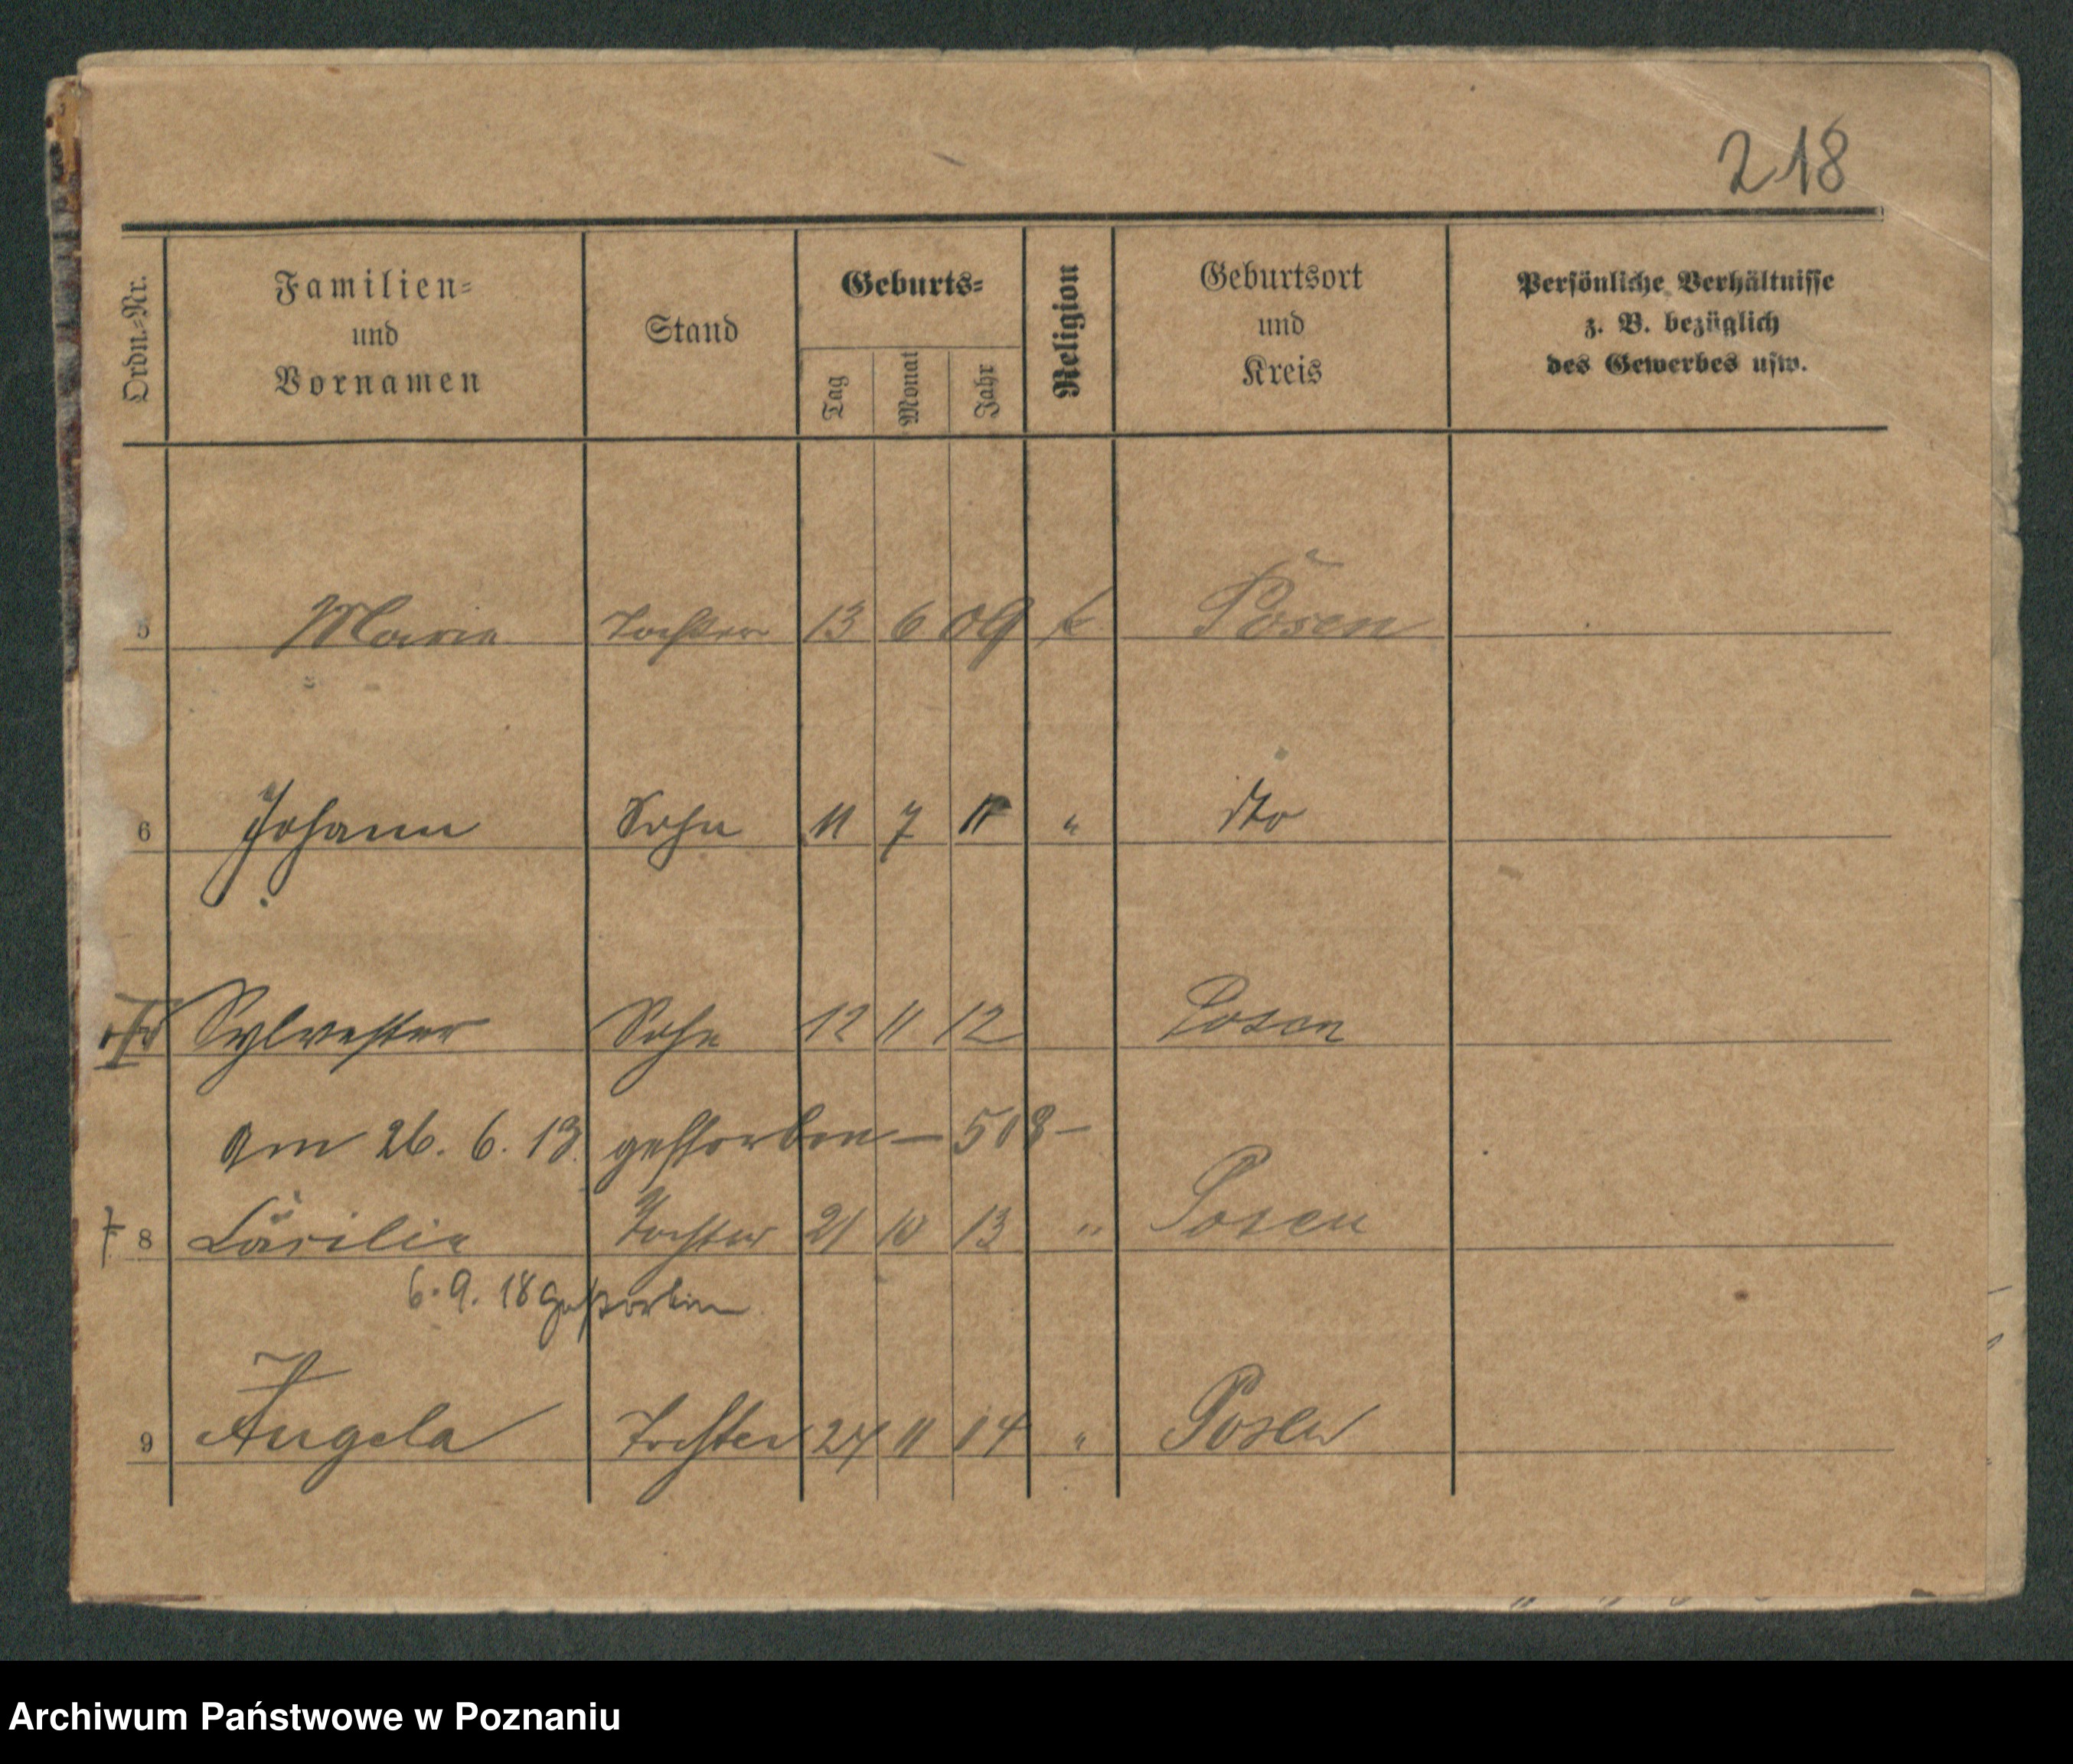 218
Ordn.-Nr. Familien- und Vornamen Stand Geburts- Tag Monat Jahr Religion Geburtsort und Kreis Persönliche Verhältnisse z. B. bezüglich des Gewerbes usw.
5 Marie Tochter 13 6 09 k Posen
6 Johann Sohn 11 7 11 " dto
Sylvester Sohn 12 11 12 Posen
am 26. 6. 13. gestorben – 508 –
† 8 Cäcilie Tochter 21 10 13 " Posen
6. 9. 18 gestorben
9 Angela Tochter 24 11 14 " Posen
Archiwum Państwowe w Poznaniu